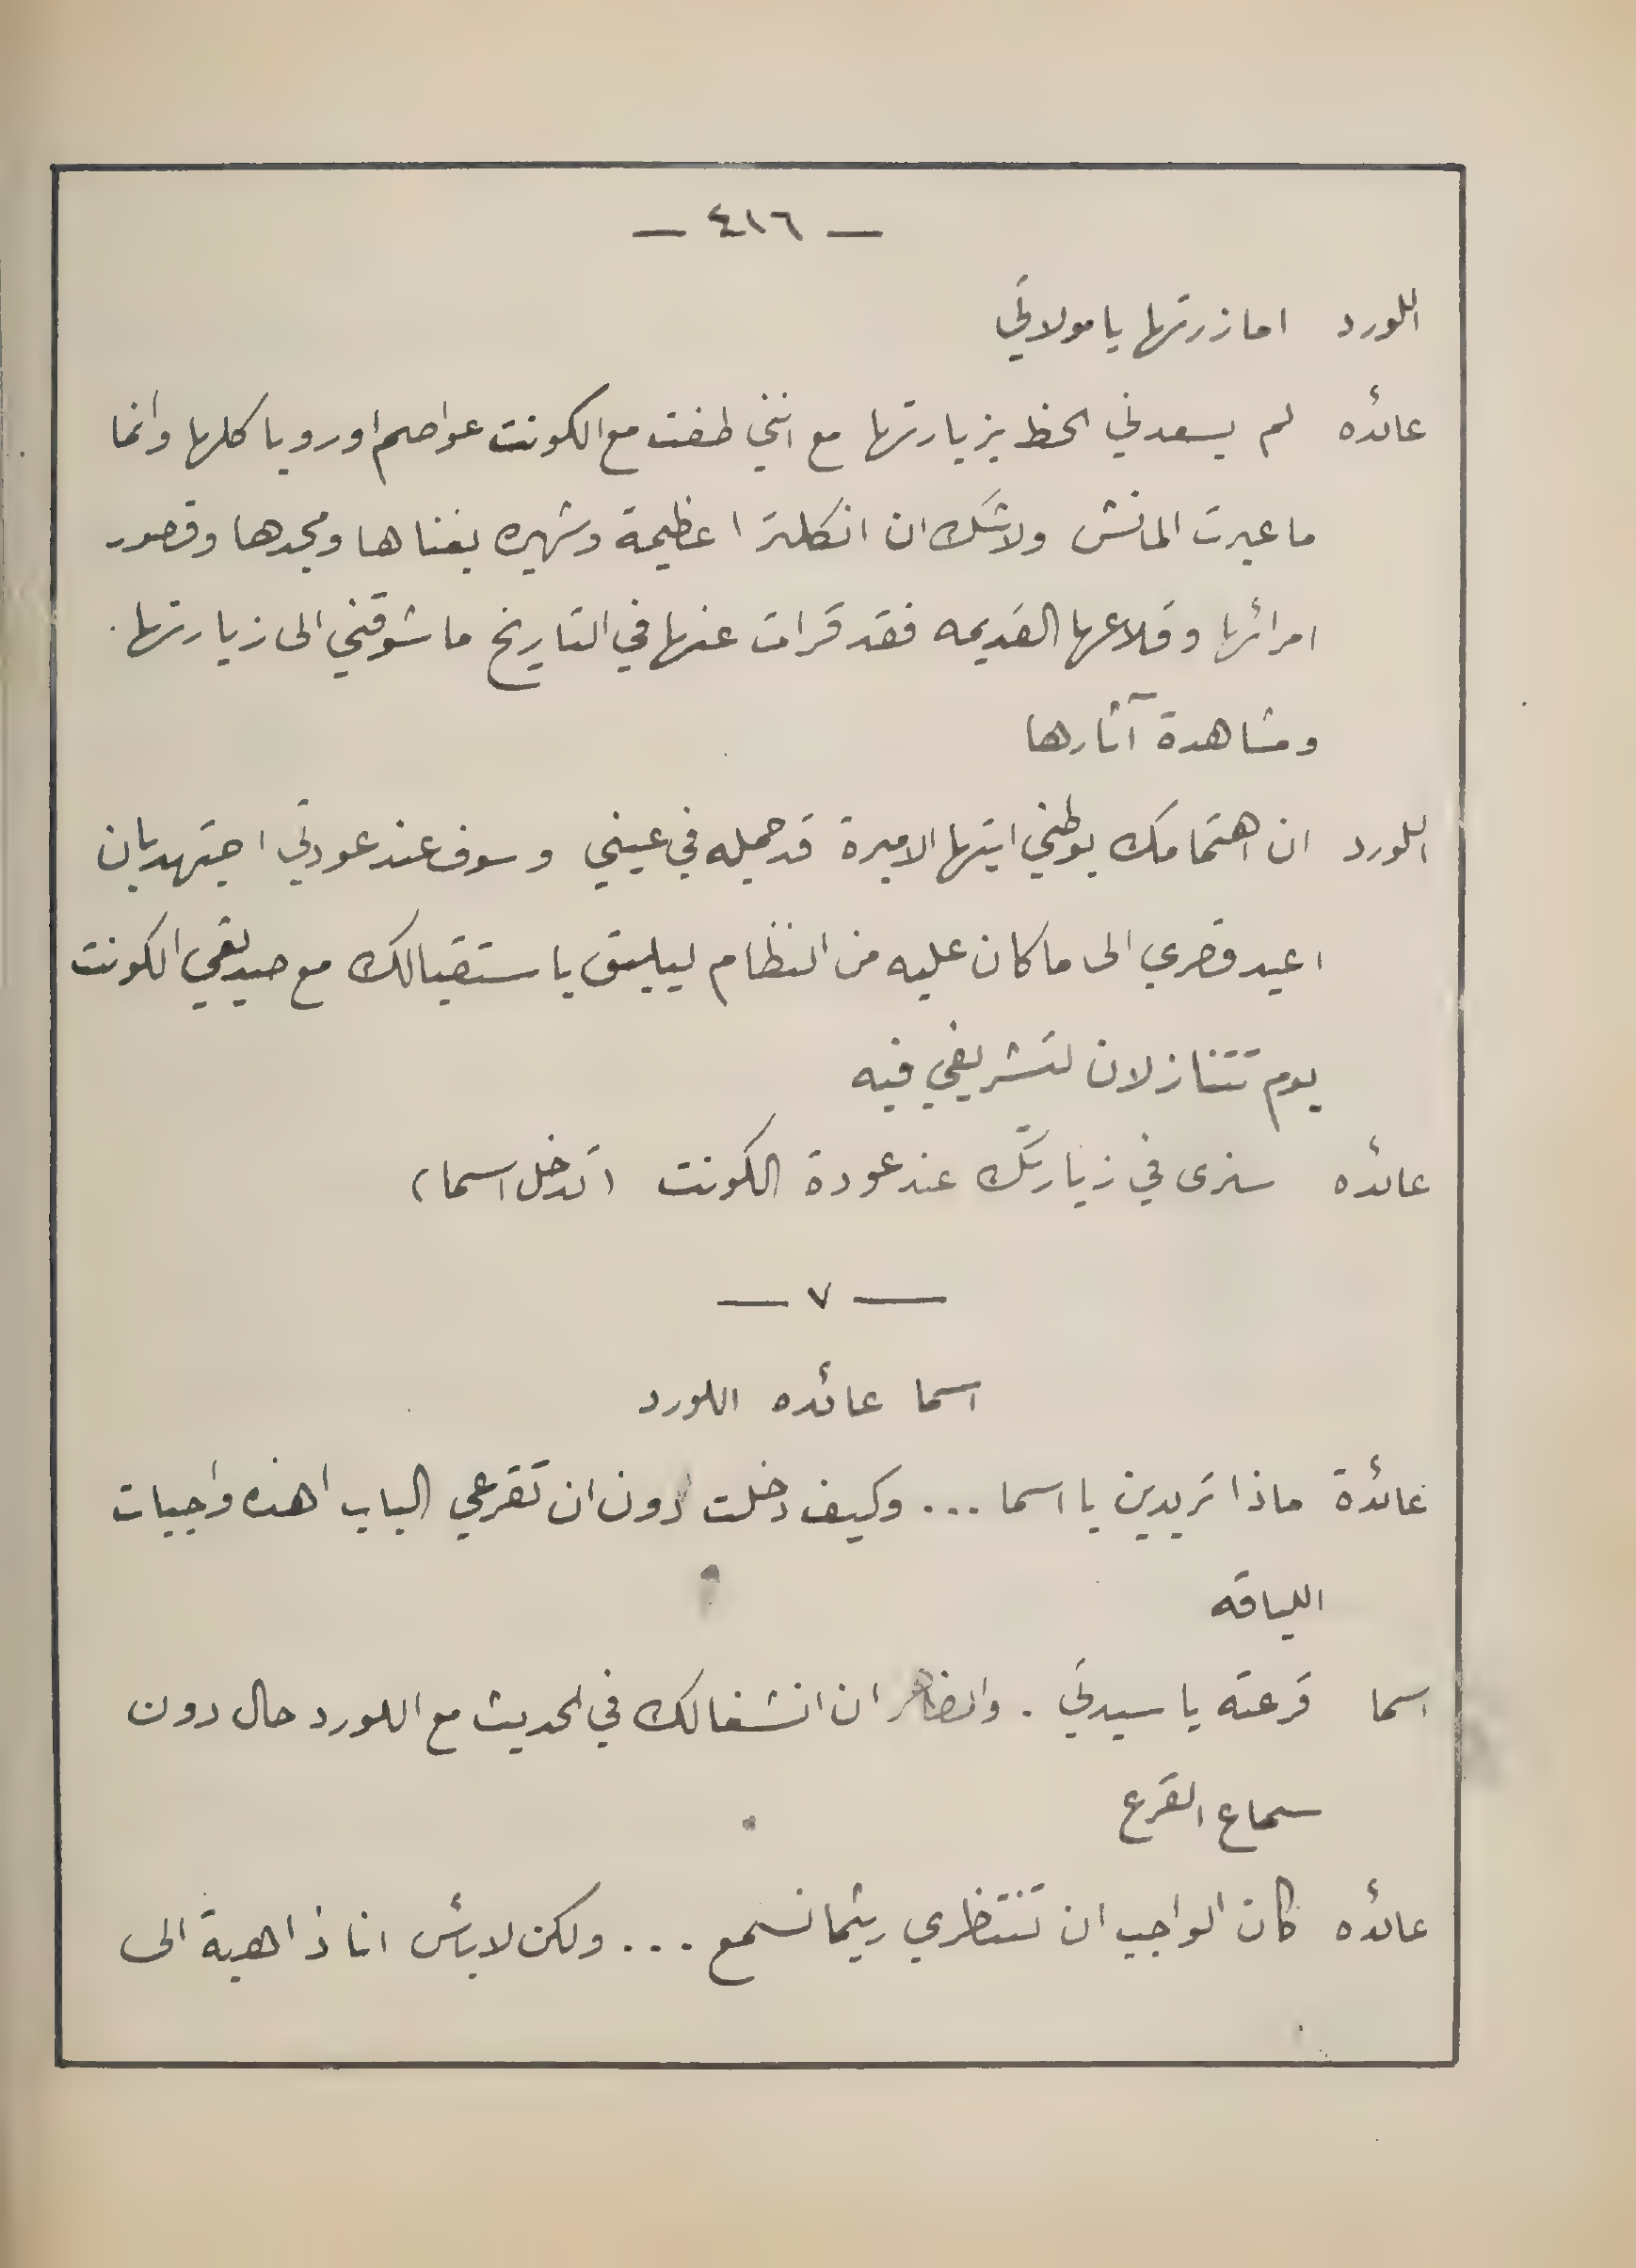 — ٤١٦ —
اللورد اما زرتها يا مولاتي
عائده لم يسعدني الحظ بزيارتها مع انني طفت مع الكونت عواصم اوروبا كلها وانما
ما عبرت المانش ولا شك ان انكلترا عظيمة وشهيره بغناها ومجدها وقصور
امرائها وقلاعها القديمه فقد قرات عنها في التاريخ ما شوقني الى زيارتها
ومشاهدة آثارها
اللورد ان اهتمامك بوطني ايتها الاميرة قد جمله في عيني وسوف عند عودتي اجتهد بان
اعيد قصري الى ما كان عليه من النظام ليليق باستقبالك مع صديقي الكونت
يوم تتنازلان لتشريفي فيه
عائده سنرى في زيارتك عند عودة الكونت (تدخل اسما)
— ٧ —
اسما عائده اللورد
عائدة ماذا تريدين يا اسما ... وكيف دخلت دون ان تقرعي الباب اهذه واجبات
اللياقه
اسما قرعته يا سيدتي . والضاهر ان انشغالك في الحديث مع اللورد حال دون
سماع القرع
عائده كان الواجب ان تنتظري ريثما نسمع ... ولكن لا بأس انا ذاهبة الى